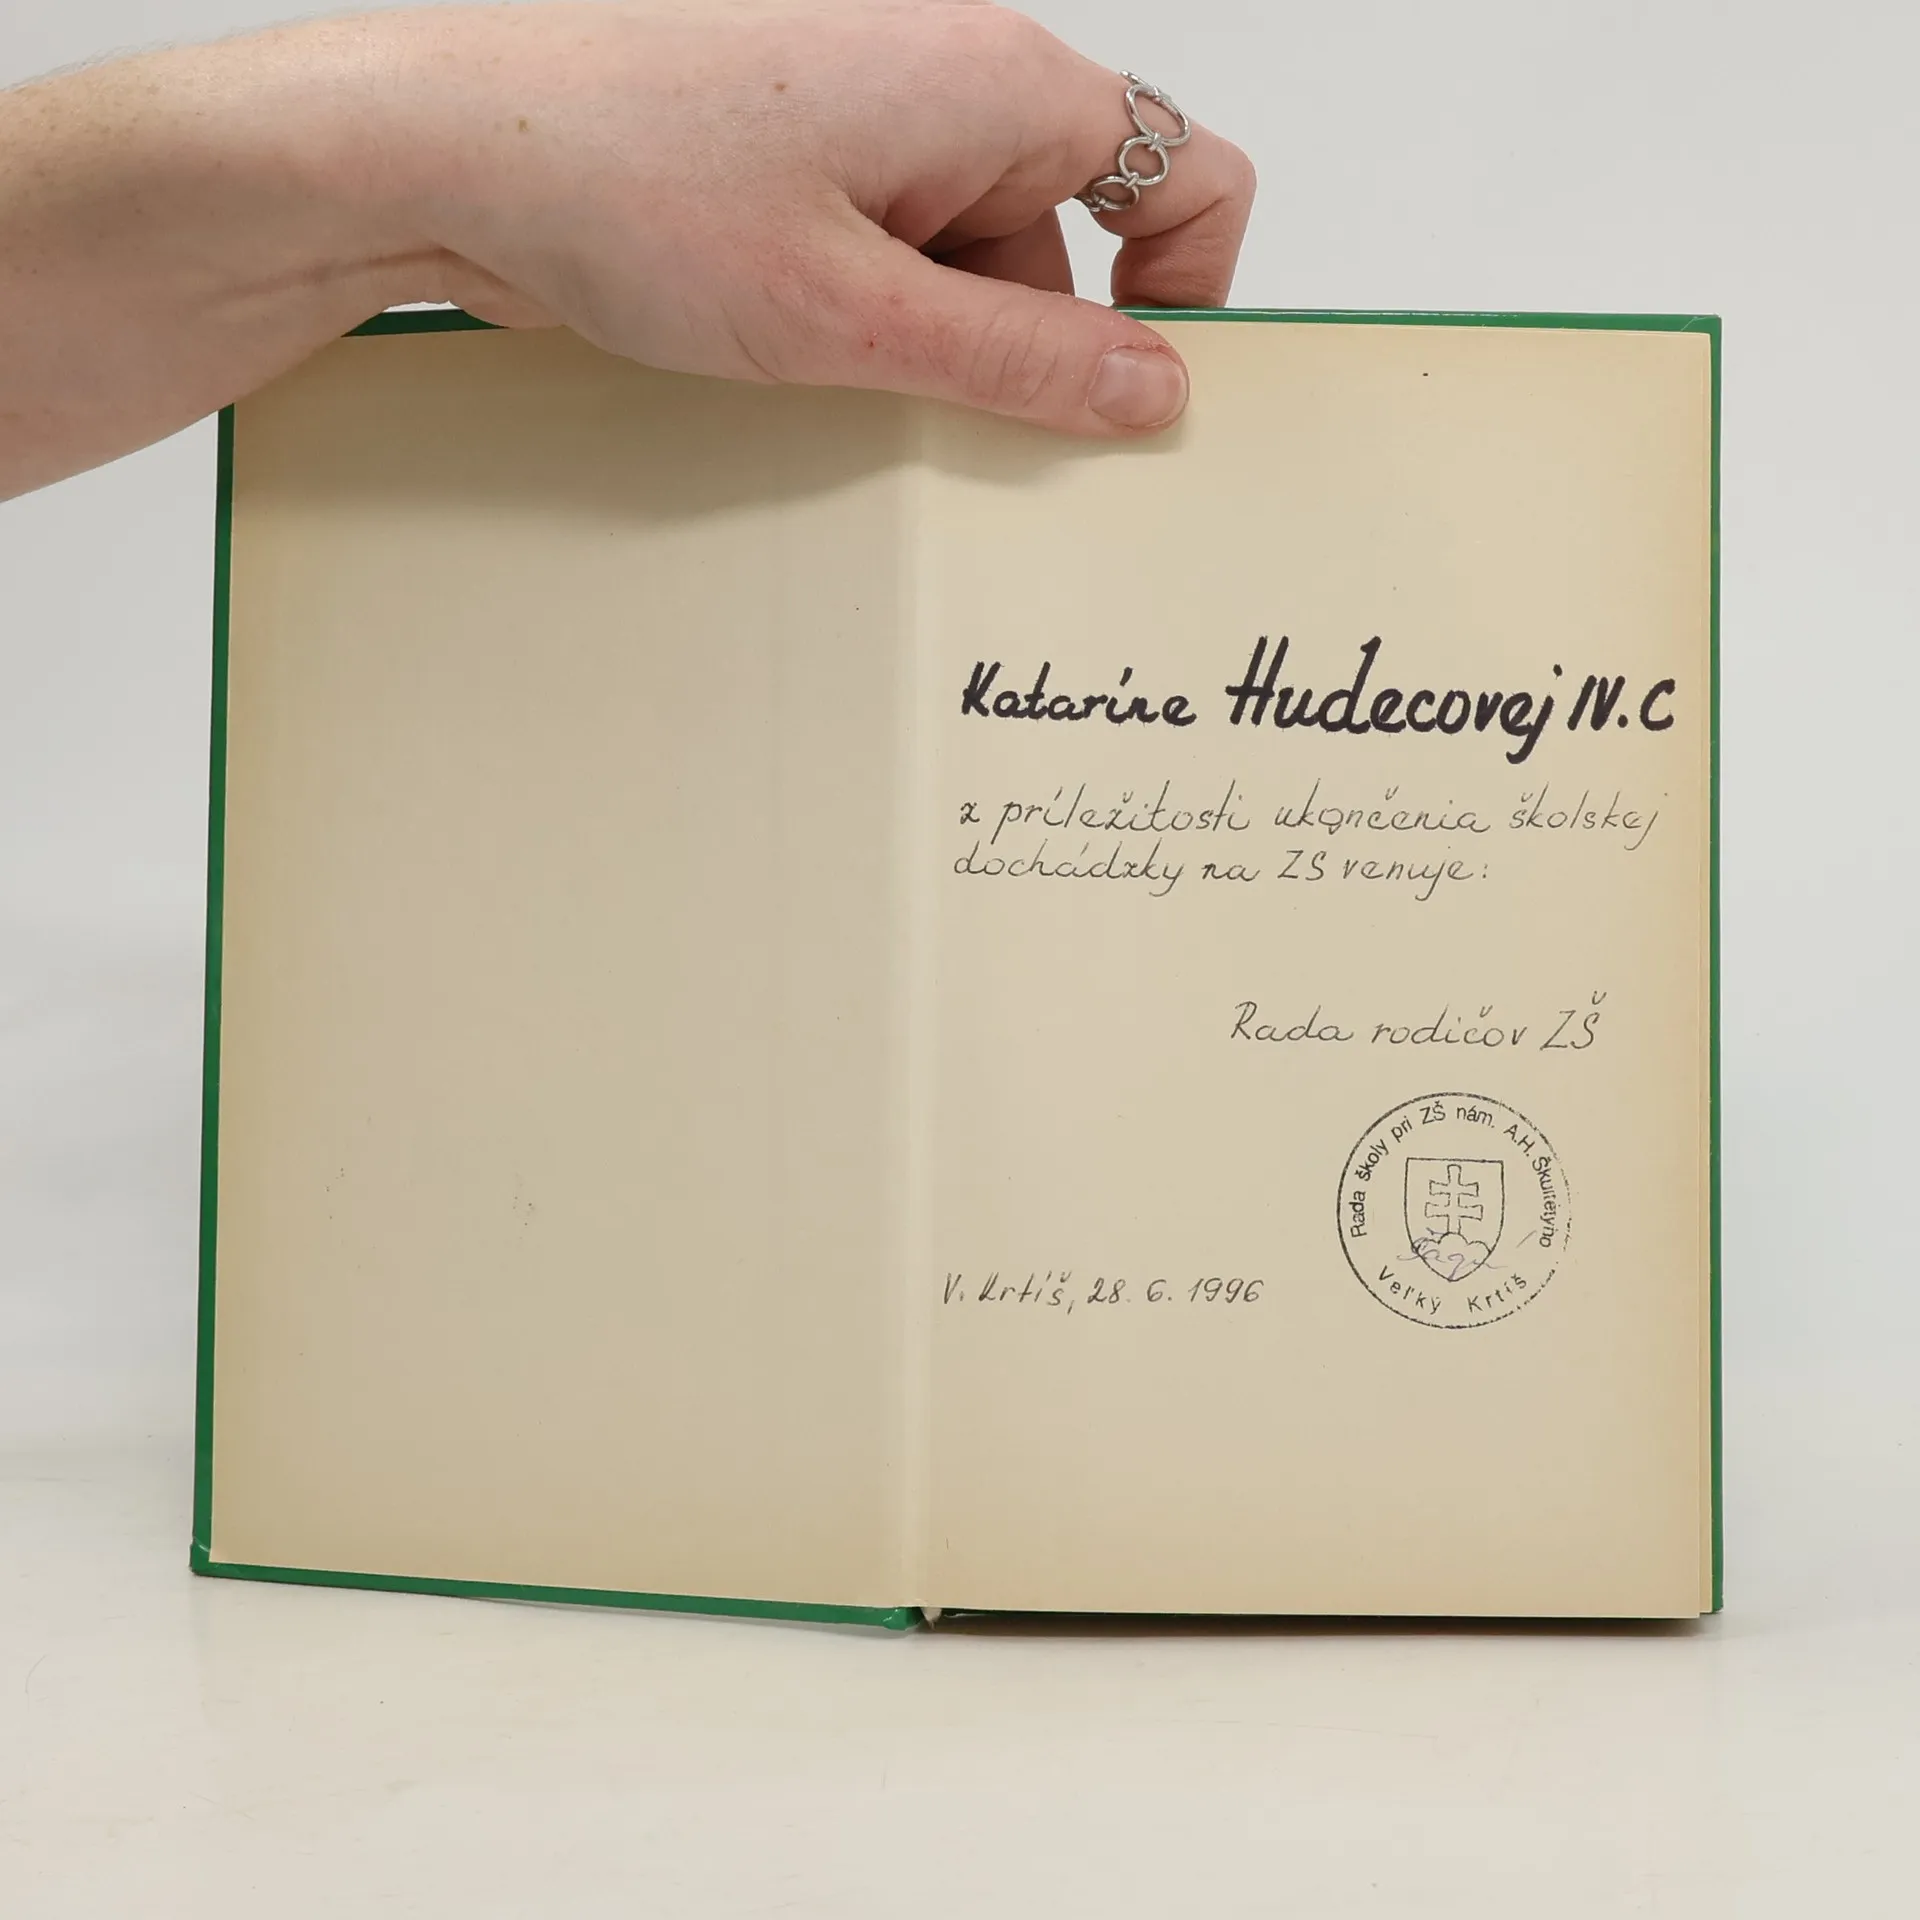 Kataríne Hudecovej IV. C
z príležitosti ukončenia školskej
dochádzky na ZŠ venuje:
Rada rodičov ZŠ
Rada školy pri ZŠ nám. A.H. Škultétyho
Veľký Krtíš
V. Krtíš, 28. 6. 1996